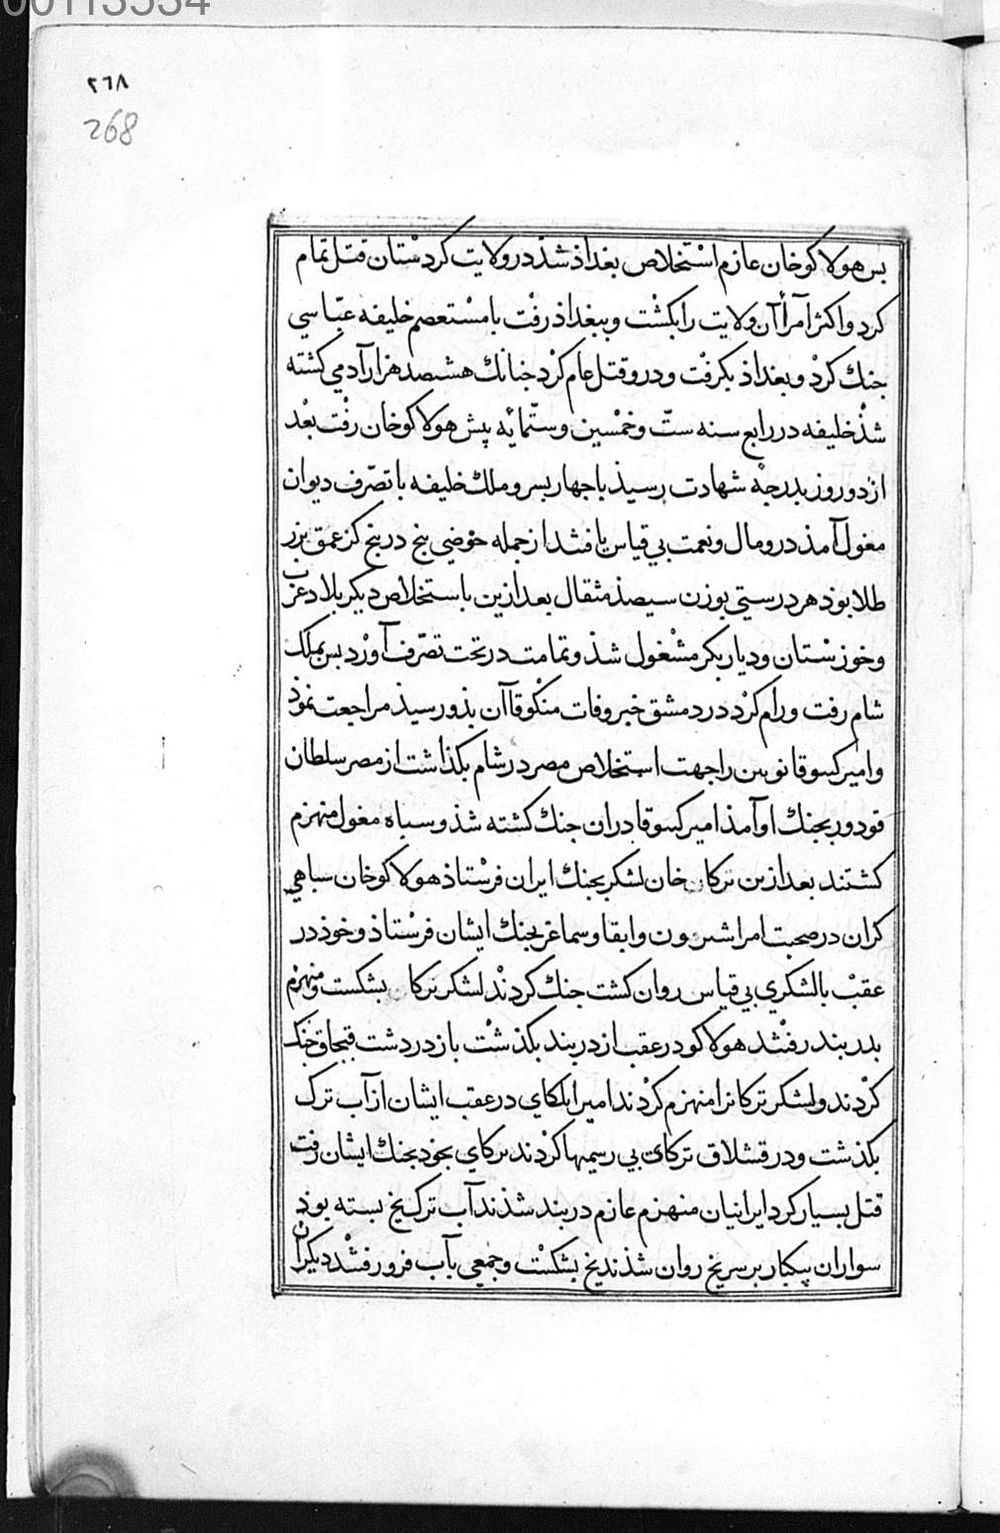 00113534
٢٦٨
268
بس هولاكوخان عازم استخلاص بغداذ شذ در ولايت كردستان قتل تمام
كرد و اكثر امرأ آن ولايت را بكشت و ببغداذ رفت با مستعصم خليفه عباسي
جنك كرد و بغداذ بكرفت و درو قتل عام كرد جنانك هشصد هزار آدمي كشته
شذ خليفه در رابع سنه ستّ و خمسين و ستّمايه پيش هولاكوخان رفت بعد
از دو روز بدرجهٔ شهادت رسيذ با جهار بسر و ملك خليفه با تصرّف ديوان
مغول آمذ درو مال و نعمت بي قياس يافتند از جمله حوضي پنج در پنج كز عمق بزر
طلا بوذ هر درستي بوزن سيصذ مثقال بعد ازين باستخلاص ديكر بلاد عرب
و خوزستان و ديار بكر مشغول شذ و تمامت در تحت تصرّف آورد بس بملك
شام رفت و رام كرد در دمشق خبر وفات منكوقاآن بذو رسيذ مراجعت نموذ
و امير كسوقا نوين را جهت استخلاص مصر در شام بكذاشت از مصر سلطان
قودوز بجنك او آمذ امير كسوقا دران جنك كشته شذ و سباه مغول منهزم
كشتند بعد ازين تركاى خان لشكر بجنك ايران فرستاذ هولاكوخان سباهي
كران در صحبت امرا شيرمون و ابقا و سماغر بجنك ايشان فرستاذ و خوذ در
عقب با لشكري بي قياس روان كشت جنك كردند لشكر تركاى بشكست و منهزم
بدربند رفتند هولاكو در عقب از دربند بكذشت باز در دشت قبجاق جنك
كردند و لشكر تركانرا منهزم كردند امير ايلكاي در عقب ايشان از آب ترك
بكذشت و در قشلاق تركاى بي رسميها كردند بركاي بخود بجنك ايشان رفت
قتل بسيار كرد ايرانيان منهزم عازم دربند شذند آب ترك يخ بسته بوذ
سواران بيكبار بر سر يخ روان شذند يخ بشكست و جمعي بآب فرو رفتند ديكران